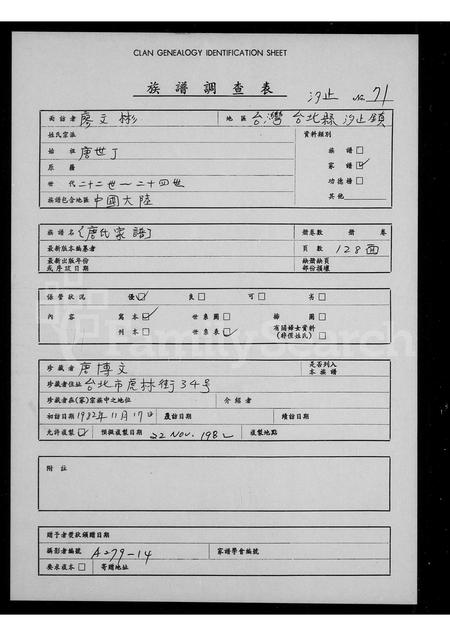 CLAN GENEALOGY IDENTIFICATION SHEET
族譜調查表
汐止 No. 71
面訪者 廖文彬 地區 台灣 台北縣 汐止鎮
姓氏宗派 資料類別
始祖 唐世丁 族譜□
原籍 家譜☑
世代 二十二世－二十四世 功德榜□
族譜包含地區 中國大陸 其他
族譜名 [唐氏家譜] 冊卷數 冊 卷
最新版本編纂者 頁數 128面
最新出版年份 缺冊缺頁
或序跋日期 部份損壞
保管狀況 優☑ 良□ 可□ 劣□
內容 寫本☑ 世系圖□ 掃圖□
刊本□ 世系表☑ 有關婦女資料□
(詳價姓氏)
珍藏者 唐博文 是否列入
本族譜
珍藏者住址 台北市虎林街34号
珍藏者在(家)宗族中之地位 介紹者
初訪日期 1982年11月17日 覆訪日期 續訪日期
允許複製☑ 預擬複製日期 22 NOV. 1982 複製地點
附註
贈予者獎狀頒贈日期
攝影者編號 A279-14 家譜學會編號
要求複本□ 寄贈地址
FamilySearch